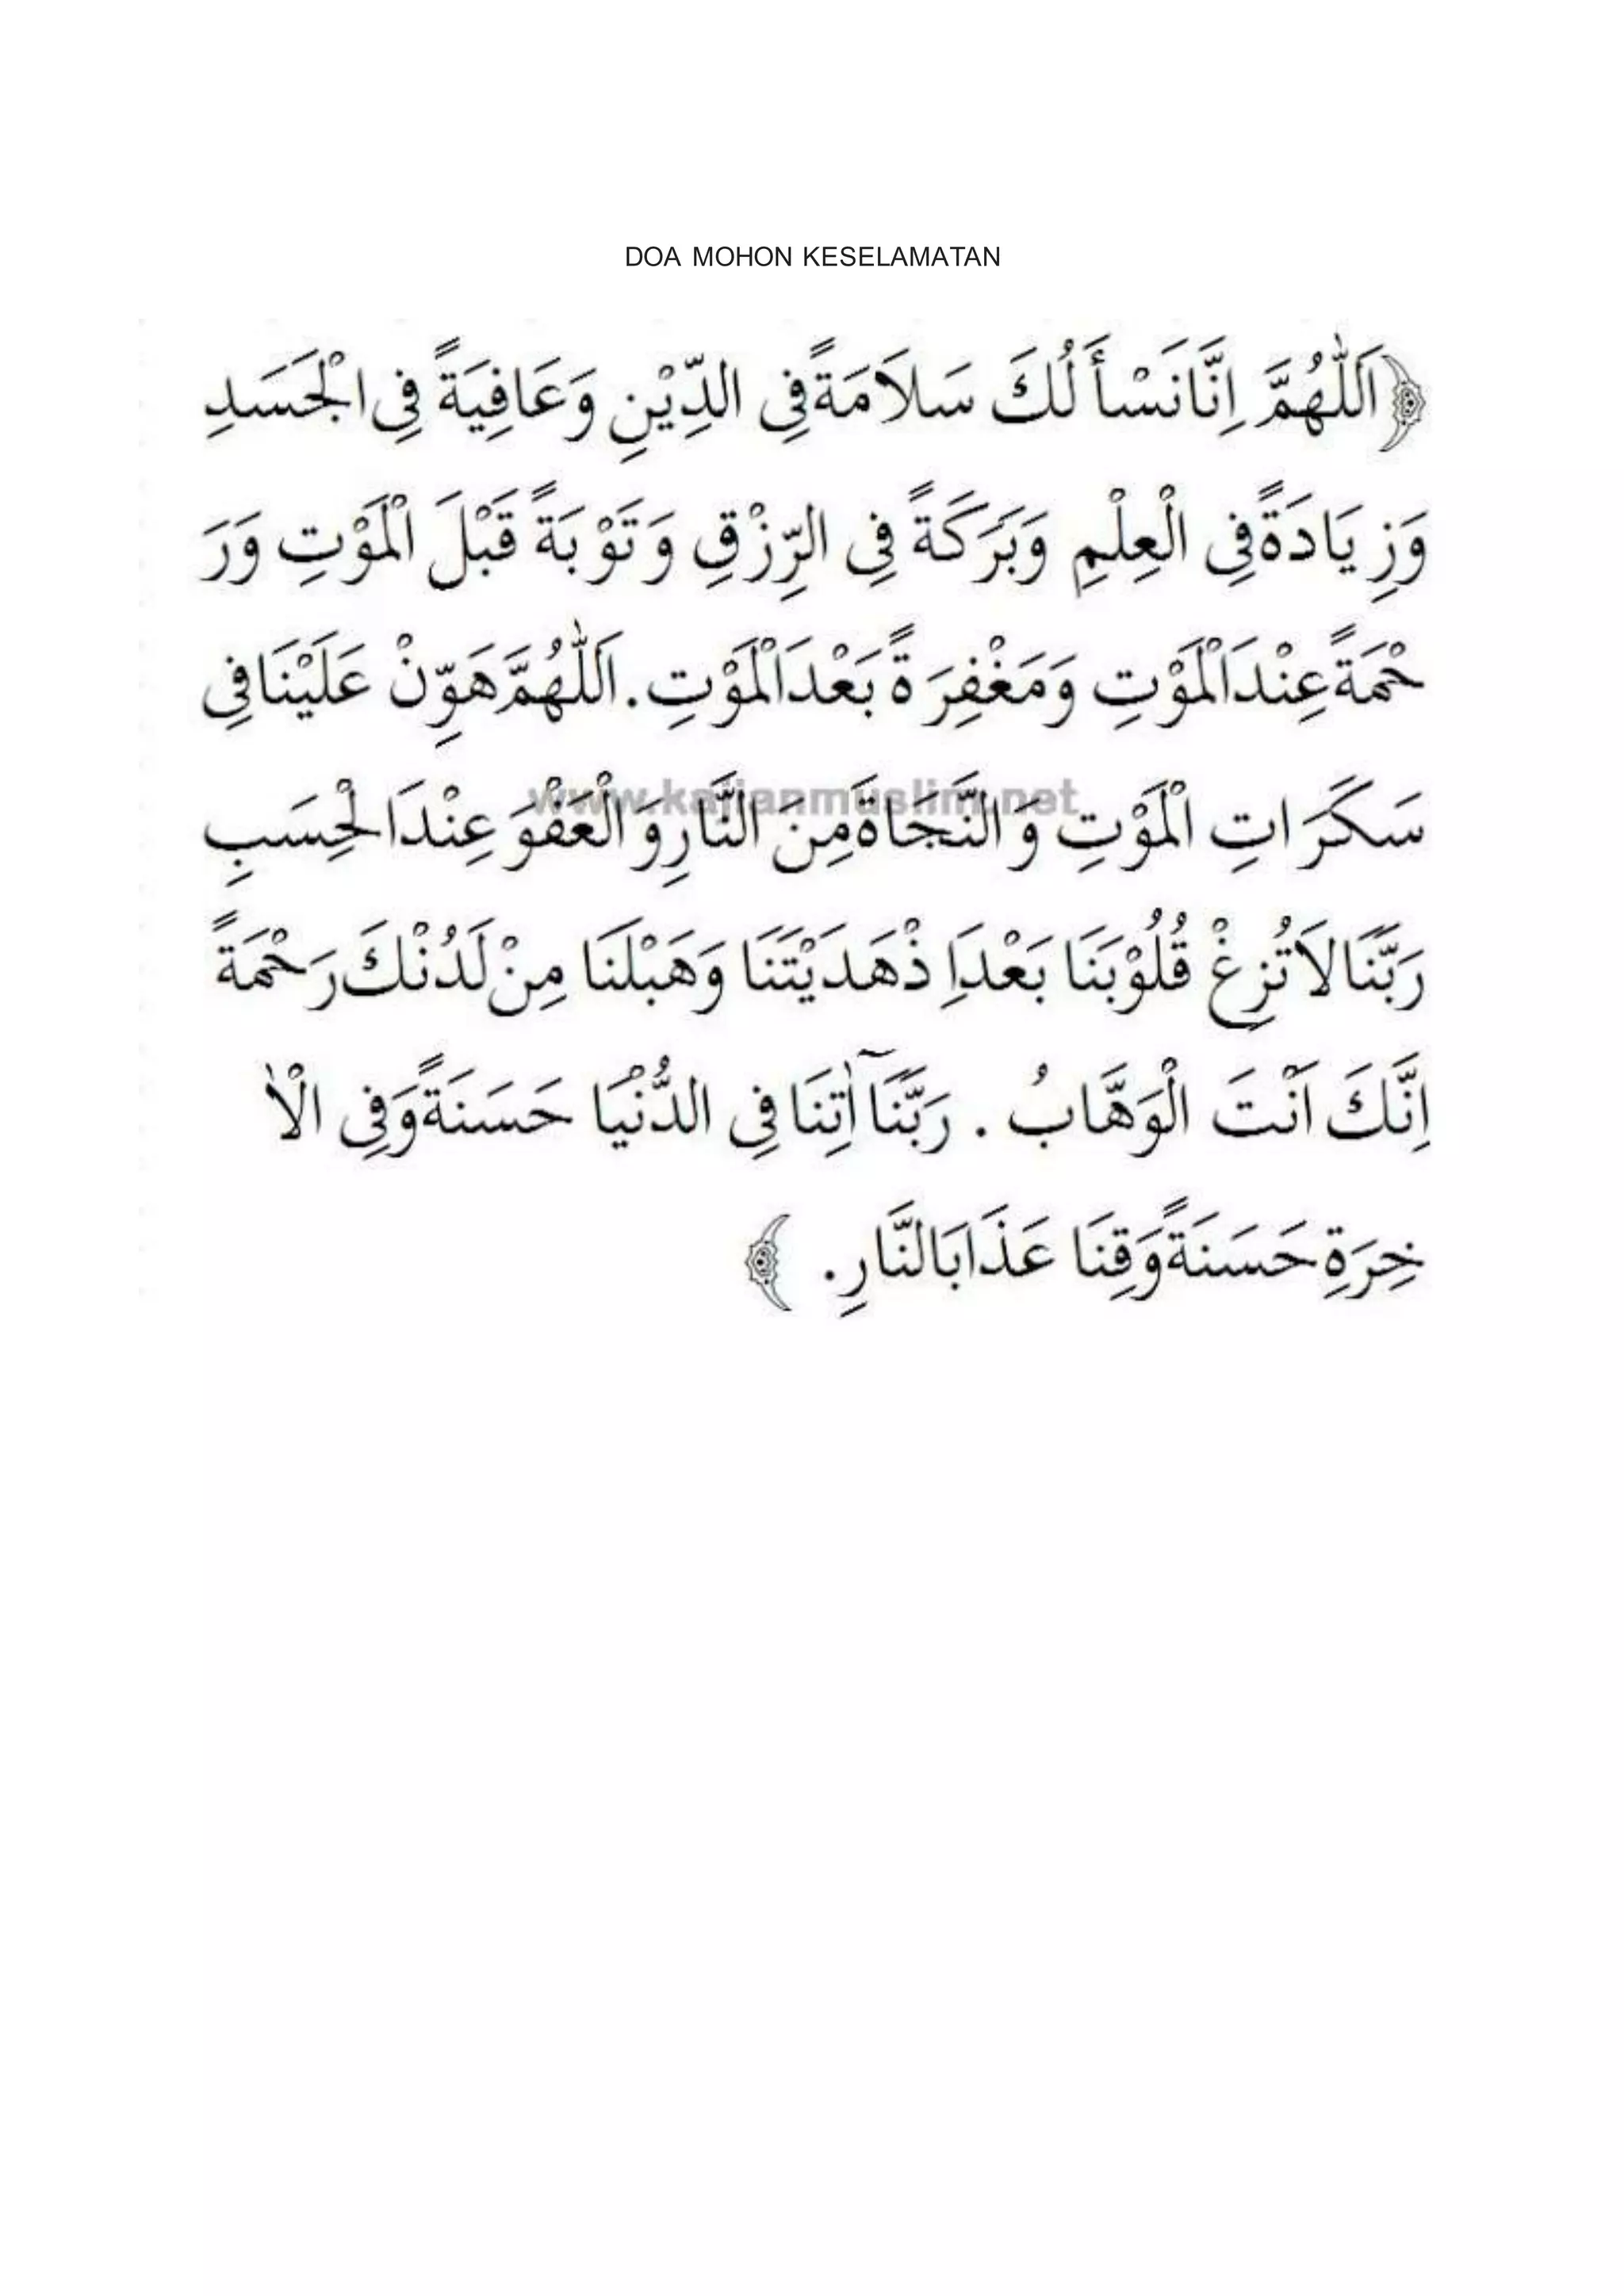 DOA MOHON KESELAMATAN
﴿اَللّٰهُمَّ اِنَّانَسْأَلُكَ سَلاَمَةًفِى الدِّيْنِ وَعَافِيَةً فِى الْجَسَدِ
وَزِيَادَةًفِى الْعِلْمِ وَبَرَكَةً فِى الرِّزْقِ وَتَوْبَةً قَبْلَ الْمَوْتِ وَرَ
حْمَةًعِنْدَالْمَوْتِ وَمَغْفِرَةً بَعْدَالْمَوْتِ. اَللّٰهُمَّ هَوِّنْ عَلَيْنَافِى
سَكَرَاتِ الْمَوْتِ وَالنَّجَاةَمِنَ النَّارِوَالْعَفْوَعِنْدَالْحِسَبِ
www.kajianmuslim.net
رَبَّنَالاَتُزِغْ قُلُوْبَنَا بَعْدَاِذْهَدَيْتَنَا وَهَبْلَنَا مِنْ لَدُنْكَ رَحْمَةً
اِنَّكَ اَنْتَ الْوَهَّابُ . رَبَّنَآاٰتِنَا فِى الدُّنْيَا حَسَنَةًوَفِى الْاٰ
خِرَةِ حَسَنَةًوَقِنَا عَذَابَالنَّارِ. ﴾